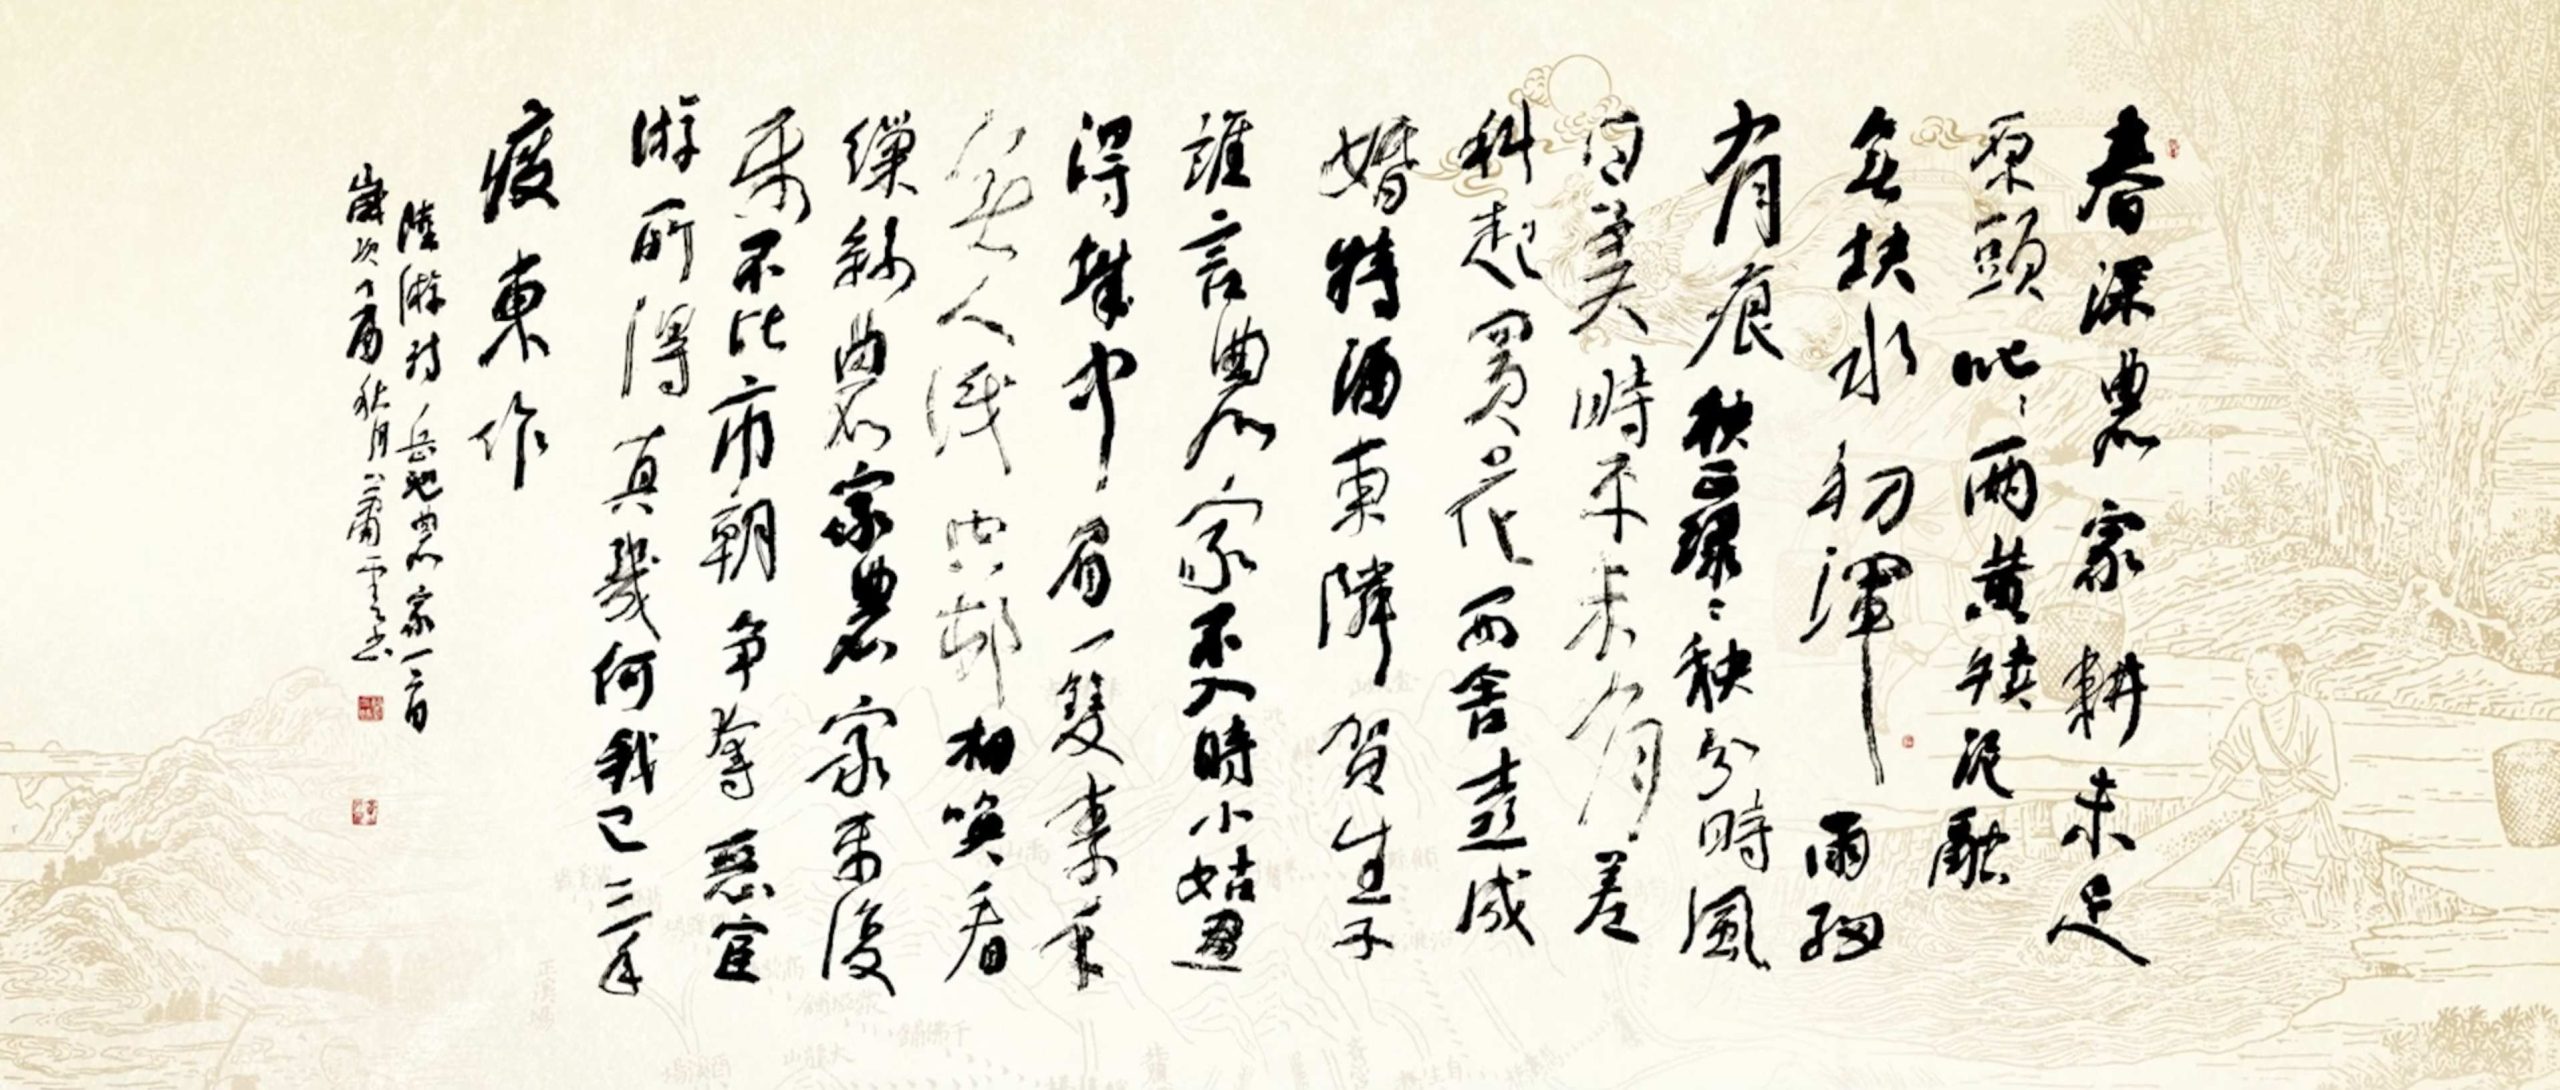 春深農家耕未足
原頭叱〻兩黃犢泥融
無块水初渾雨細
有痕秧正綠〻秧分時風
日美時平未有差
科起買花西舍喜成
婚持酒東隣賀生子
誰言農家不入時小姑畫
得城中眉一雙素手
無人識空邨相喚看
繅絲農家農家樂復
樂不比市朝爭奪惡宦
游所得真幾何我已三年
廢東作
陸游詩岳池農家一首
歲次丁酉秋月